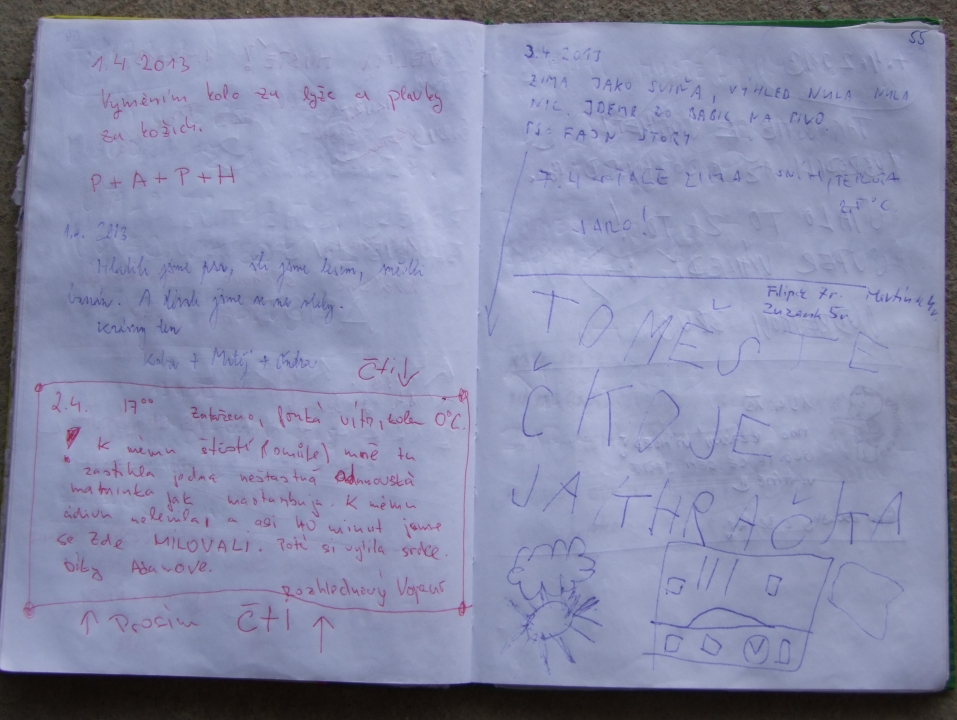 1.4.2013
Vyměním kolo za lyže a plavky
za kožich.
P + A + P + H
1.4. 2013
jsme jsme
A jsme se na
Krásný den
Kuba + Matěj +
Čti ↓
2.4. 17⁰⁰ Zataženo, fouká vítr, kolem 0°C.
K mému štěstí (smůle) mně tu
zastihla jedna nešťastná Adamovská
maminka jak masturbuji. K mému
údivu nelenila, a asi 40 minut jsme
se zde MILOVALI. Poté si vylila srdce.
Díky Adamove.
Rozhlednový Voyeur
↑ Prosím Čti ↑
55
3.4.2013
ZIMA JAKO SVIŇA, VÝHLED NULA NULA
NIC. JDEME DO BABIC NA PIVO
PS: FAJN STORY
7.4 STÁLE ZIMA SNÍH, TEPLOTA
2,5°C
JARO!
Filípek 7r.
Zuzanka 5r.
TOMEŠTE
ČKOJE
JAITHRAČKA